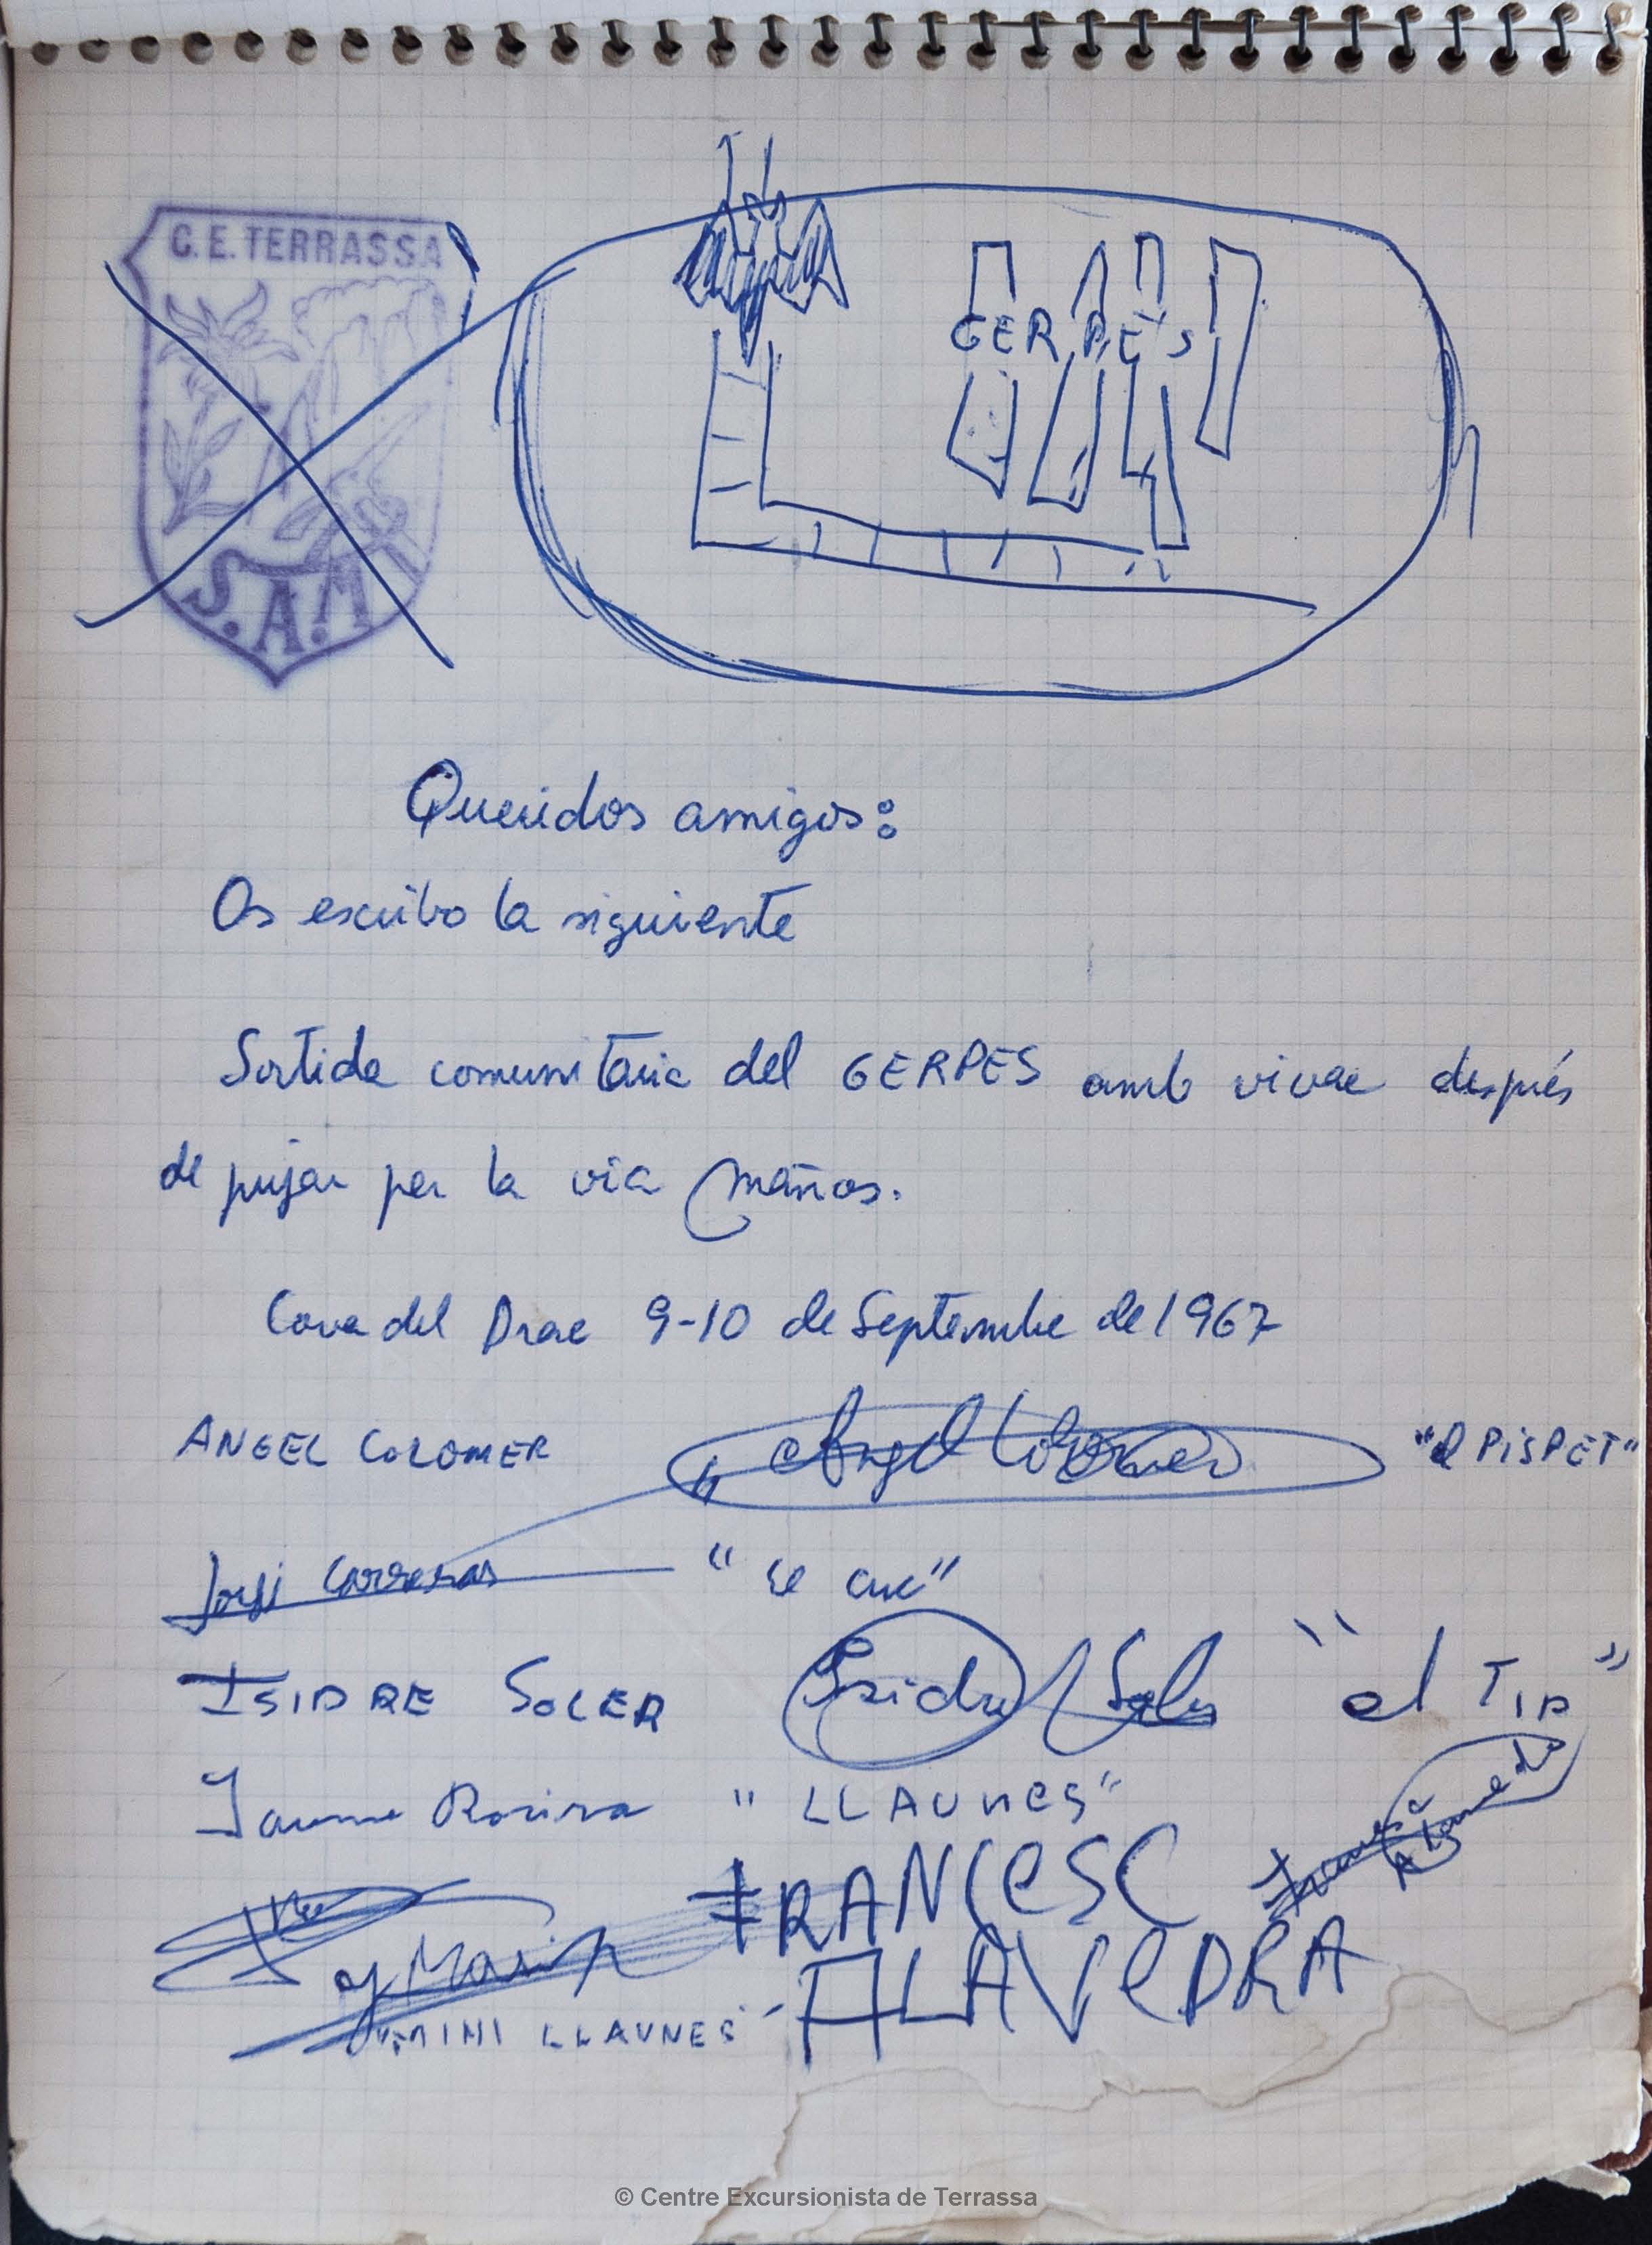 C.E. TERRASSA
S.A.M
GERPE'S
Queridos amigos:
Os escribo la siguiente
Sortida comunitaria del GERPES amb vivac después
de pujar per la via maños.
Cova del Drac 9-10 de Septembre de 1967
ANGEL COLOMER Angel Colomer "el PISPET"
Jordi Carreras "se cuc"
ISIDRE SOLER Isidre Soler "el TIP"
Jaume Rovira "LLAUNES"
FRANCESC
ALAVEDRA
"MINI LLAUNES"
© Centre Excursionista de Terrassa